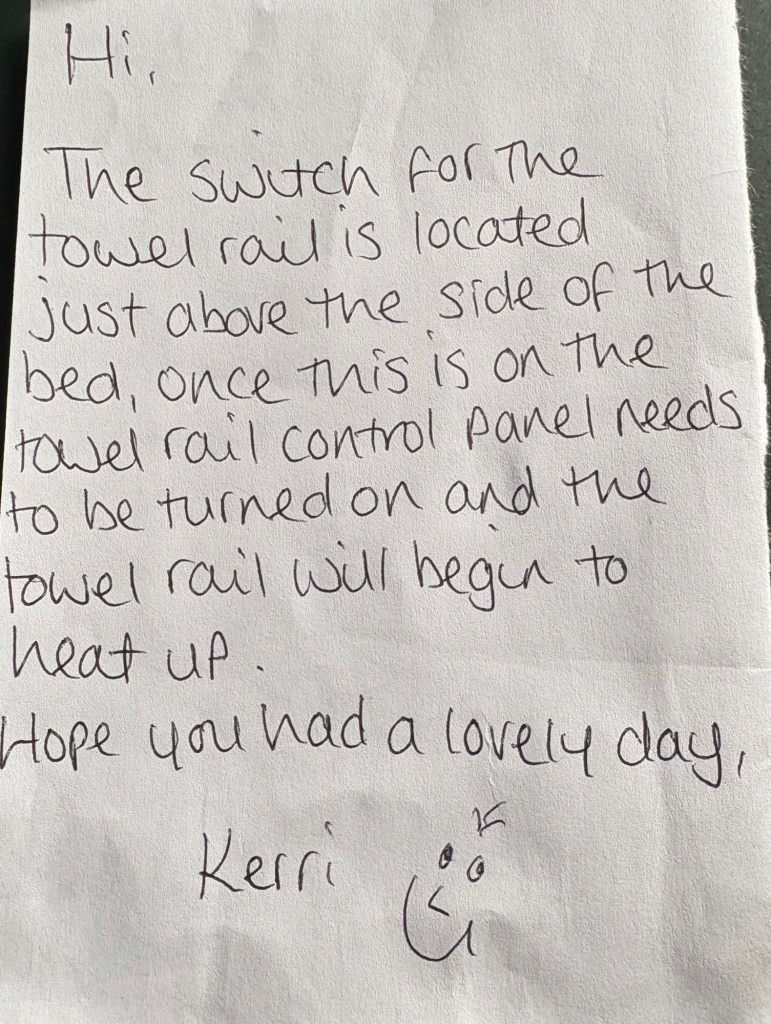 Hi,
The switch for the
towel rail is located
just above the side of the
bed, once this is on the
towel rail control panel needs
to be turned on and the
towel rail will begin to
heat up.
Hope you had a lovely day,
Kerri